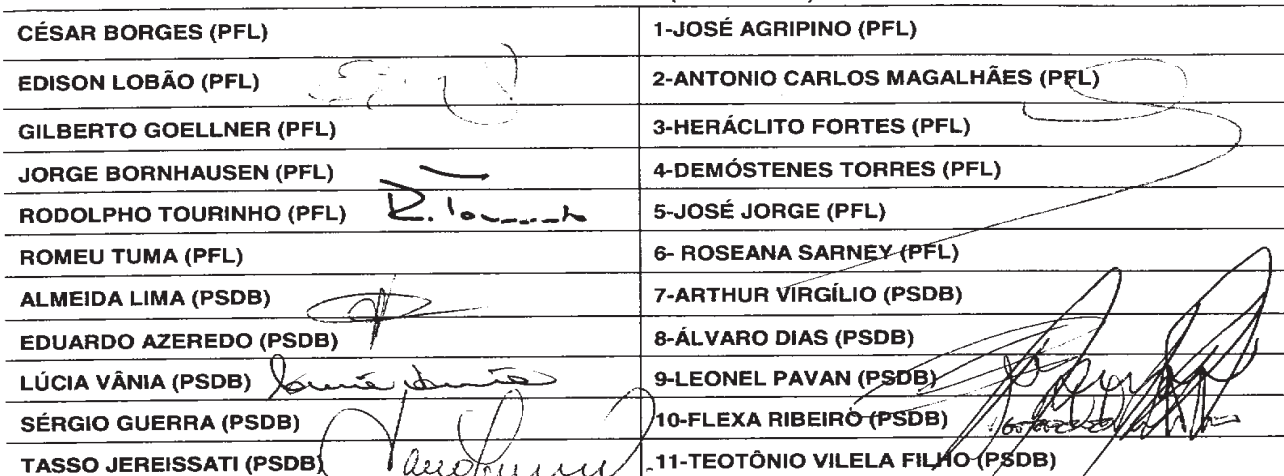 CÉSAR BORGES (PFL)
1-JOSÉ AGRIPINO (PFL)
EDISON LOBÃO (PFL)
2-ANTONIO CARLOS MAGALHÃES (PFL)
GILBERTO GOELLNER (PFL)
3-HERÁCLITO FORTES (PFL)
JORGE BORNHAUSEN (PFL)
4-DEMÓSTENES TORRES (PFL)
RODOLPHO TOURINHO (PFL)
5-JOSÉ JORGE (PFL)
ROMEU TUMA (PFL)
6- ROSEANA SARNEY (PFL)
ALMEIDA LIMA (PSDB)
7-ARTHUR VIRGÍLIO (PSDB)
EDUARDO AZEREDO (PSDB)
8-ÁLVARO DIAS (PSDB)
LÚCIA VÂNIA (PSDB)
9-LEONEL PAVAN (PSDB)
SÉRGIO GUERRA (PSDB)
10-FLEXA RIBEIRO (PSDB)
TASSO JEREISSATI (PSDB)
11-TEOTÔNIO VILELA FILHO (PSDB)